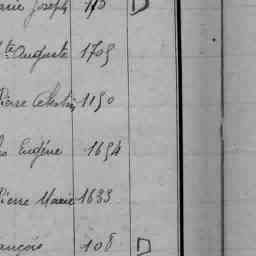 Joseph
te Auguste 1705
Pierre Célestin 1190
Eugène 1654
Pierre Marie 1633
ançois 108 D